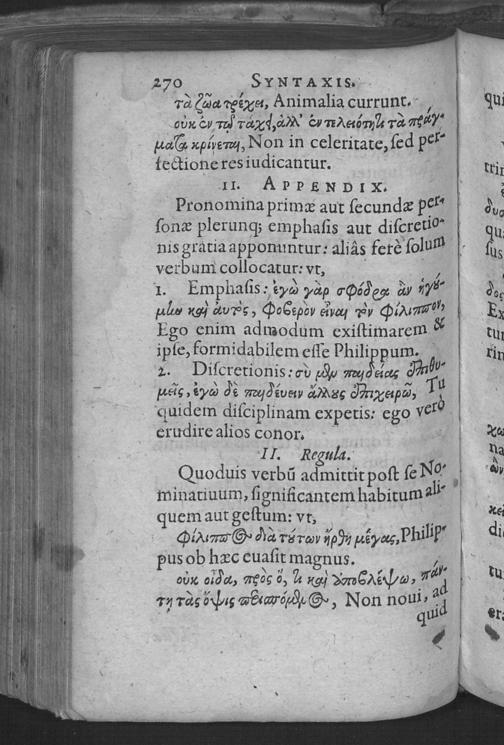 270 SYNTAXIS.
τὰ ζῶα τρέχει, Animalia currunt.
οὐκ ἐν τῷ τάχει, ἀλλ' ἐν τελειότητι τὰ πράγ-
ματα κρίνεται, Non in celeritate, sed per-
fectione res iudicantur.
II. APPENDIX.
Pronomina primæ aut secundæ per-
sonæ plerunq; emphasis aut discretio-
nis gratia apponuntur: aliâs ferè solum
verbum collocatur: vt,
1. Emphasis: ἐγὼ γὰρ σφόδρα ἂν ἡγού-
μην καὶ αὐτὸς, φοβερὸν εἶναι τὸν φίλιππον,
Ego enim admodum existimarem &
ipse, formidabilem esse Philippum.
2. Discretionis: σὺ μὲν παιδείας ἐπιθυ-
μεῖς, ἐγὼ δὲ παιδεύειν ἄλλους ἐπιχειρῶ, Tu
quidem disciplinam expetis: ego verò
erudire alios conor.
II. Regula.
Quoduis verbū admittit post se No-
minatiuum, significantem habitum ali-
quem aut gestum: vt,
φίλιππος διὰ τούτων ἤρθη μέγας, Philip-
pus ob hæc euasit magnus.
οὐκ οἶδα, πρὸς ὅ, τι καὶ ὑποβλέψω, πάν-
τη τὰς ὄψεις περισπόμενος, Non noui, ad
quid